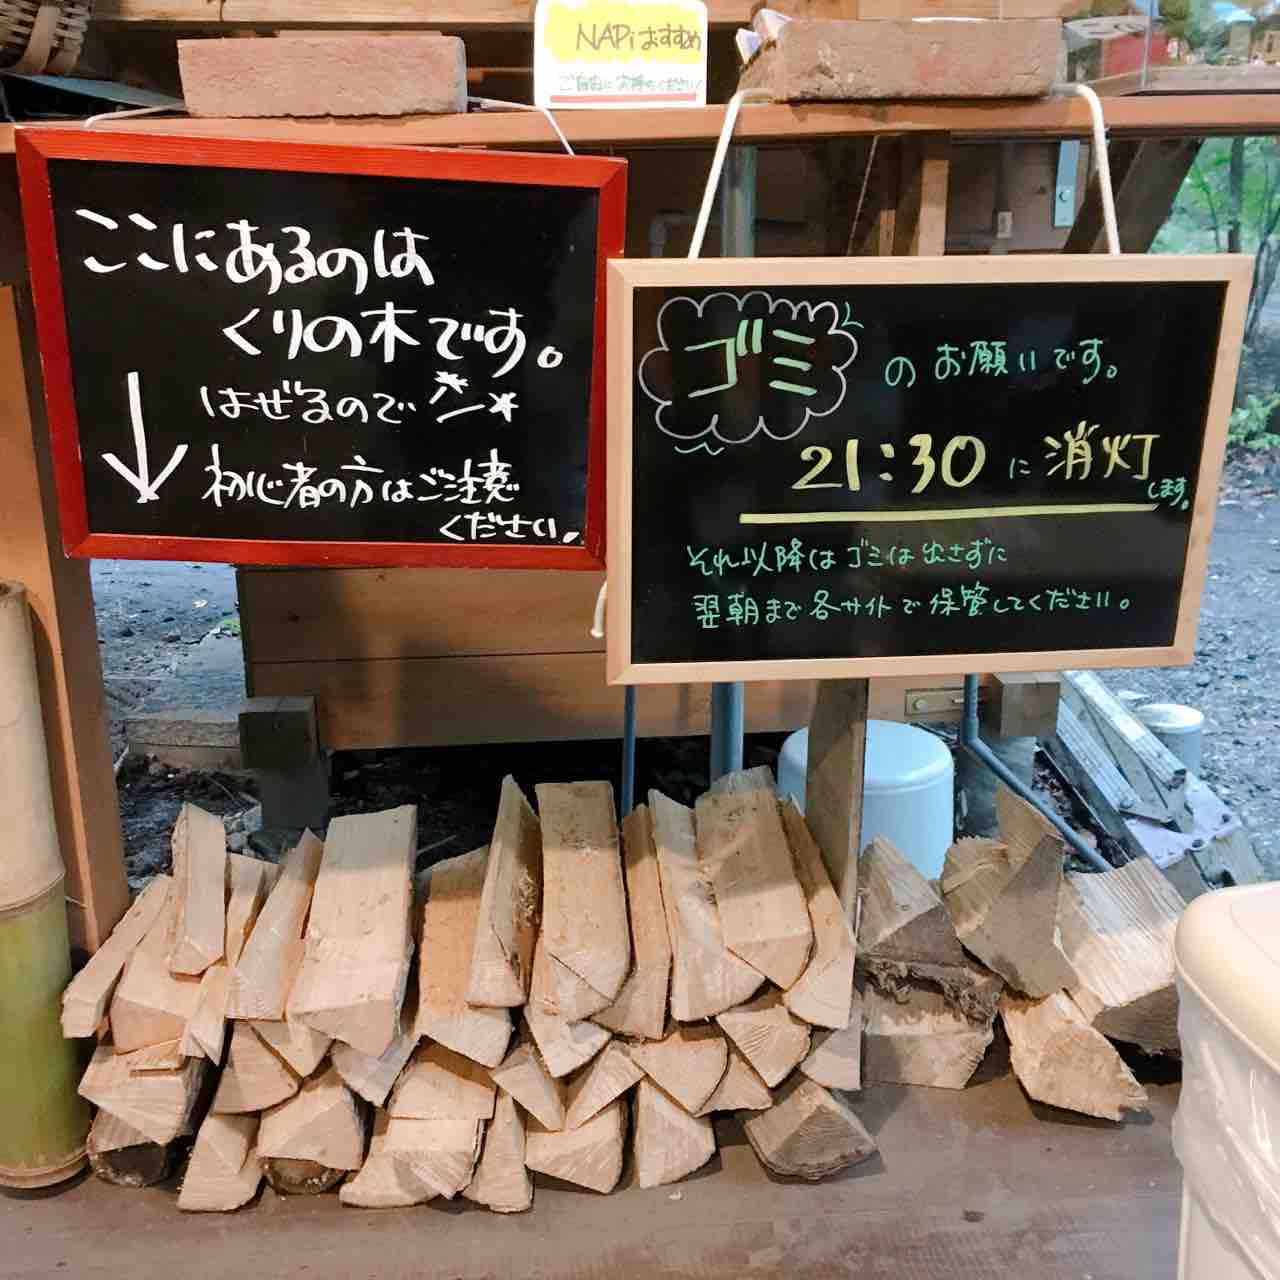 NAPiおすすめ
ご自由にお持ちください
ここにあるのは
くりの木です。
はぜるので
初心者の方はご注意
ください。
ゴミのお願いです。
21:30に消灯
します。
それ以降はゴミは出さずに
翌朝まで各サイトで保管してください。